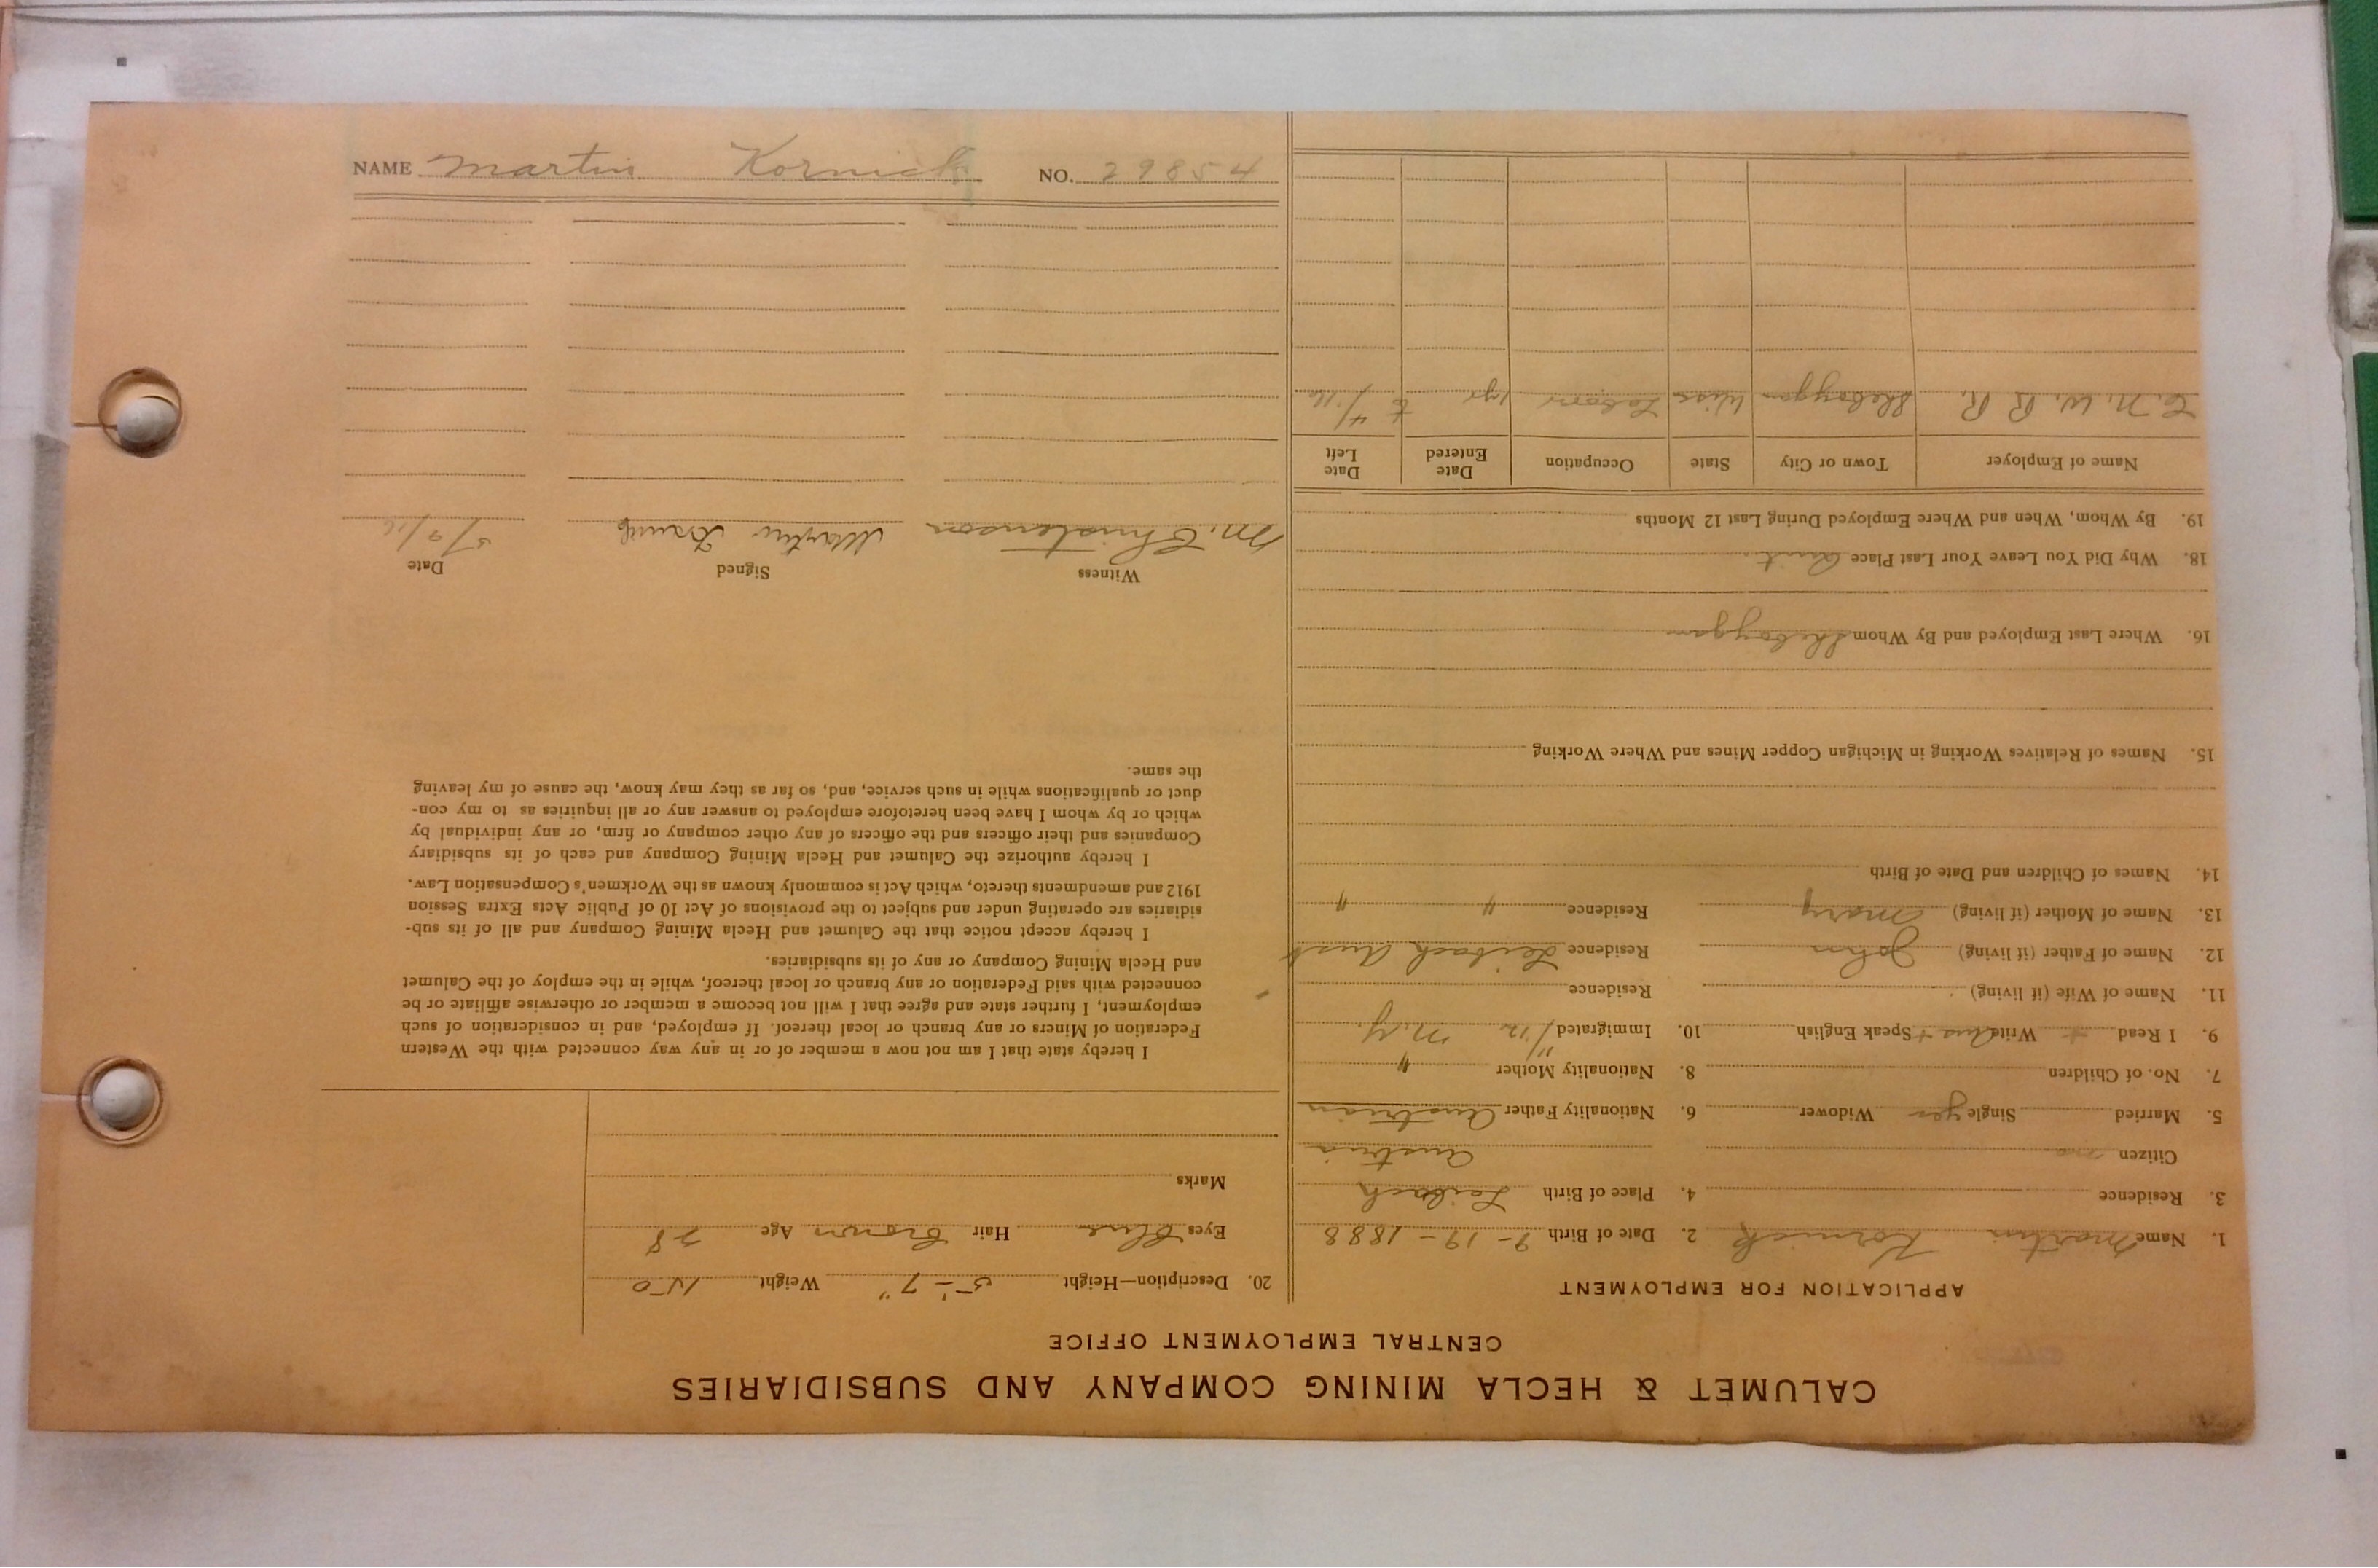 CALUMET & HECLA MINING COMPANY AND SUBSIDIARIES
CENTRAL EMPLOYMENT OFFICE
APPLICATION FOR EMPLOYMENT
1. Name Martin Kornick 2. Date of Birth 9-19-1888
3. Residence 4. Place of Birth Laibach
Citizen no Austria
5. Married Single yes Widower 6. Nationality Father Austrian
7. No. of Children 8. Nationality Mother "
9. I Read + Write Aus + Speak English 10. Immigrated /12 N.Y.
11. Name of Wife (if living) Residence
12. Name of Father (if living) John Residence Leibach Aust
13. Name of Mother (if living) Mary Residence " "
14. Names of Children and Date of Birth
15. Names of Relatives Working in Michigan Copper Mines and Where Working
16. Where Last Employed and By Whom Sheboygan
18. Why Did You Leave Your Last Place Quit
19. By Whom, When and Where Employed During Last 12 Months
Name of Employer Town or City State Occupation Date Entered Date Left
C. N. W. R R. Sheboygan Wisc Labor 1 yr to 4/16
20. Description—Height 5'-7" Weight 150
Eyes Blue Hair Brown Age 28
Marks
I hereby state that I am not now a member of or in any way connected with the Western
Federation of Miners or any branch or local thereof. If employed, and in consideration of such
employment, I further state and agree that I will not become a member or otherwise affiliate or be
connected with said Federation or any branch or local thereof, while in the employ of the Calumet
and Hecla Mining Company or any of its subsidiaries.
I hereby accept notice that the Calumet and Hecla Mining Company and all of its sub-
sidiaries are operating under and subject to the provisions of Act 10 of Public Acts Extra Session
1912 and amendments thereto, which Act is commonly known as the Workmen's Compensation Law.
I hereby authorize the Calumet and Hecla Mining Company and each of its subsidiary
Companies and their officers and the officers of any other company or firm, or any individual by
which or by whom I have been heretofore employed to answer any or all inquiries as to my con-
duct or qualifications while in such service, and, so far as they may know, the cause of my leaving
the same.
Witness Signed Date
M. Christenson Martin 5/9/16
NAME Martin Kornick NO. 29854